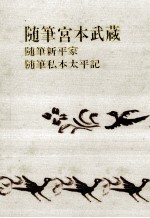 随筆宮本武蔵
随筆新平家
随筆私本太平記